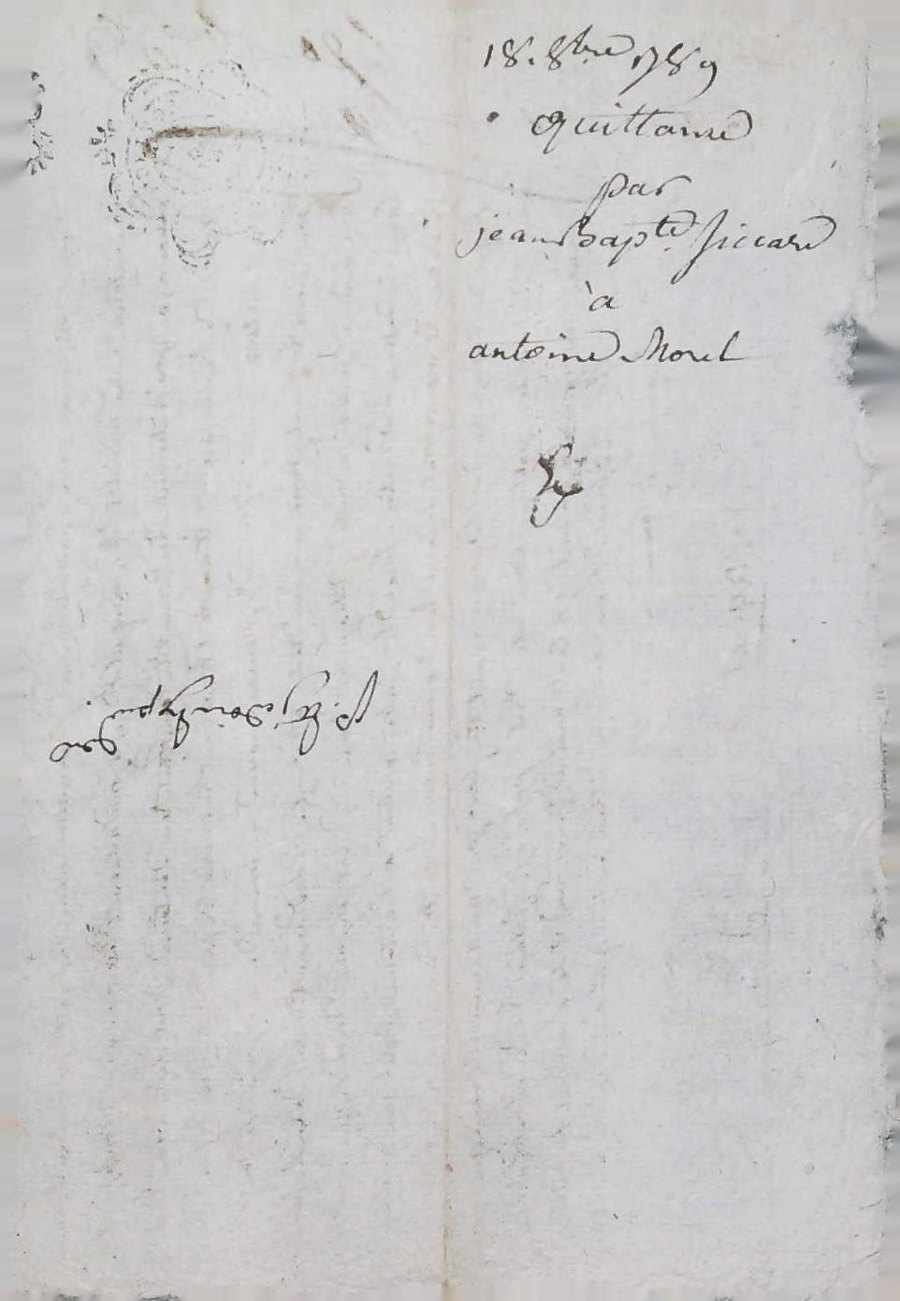 18. 8bre 1789
Quittance
par
jean Bapte. Siccard
à
antoine Morel